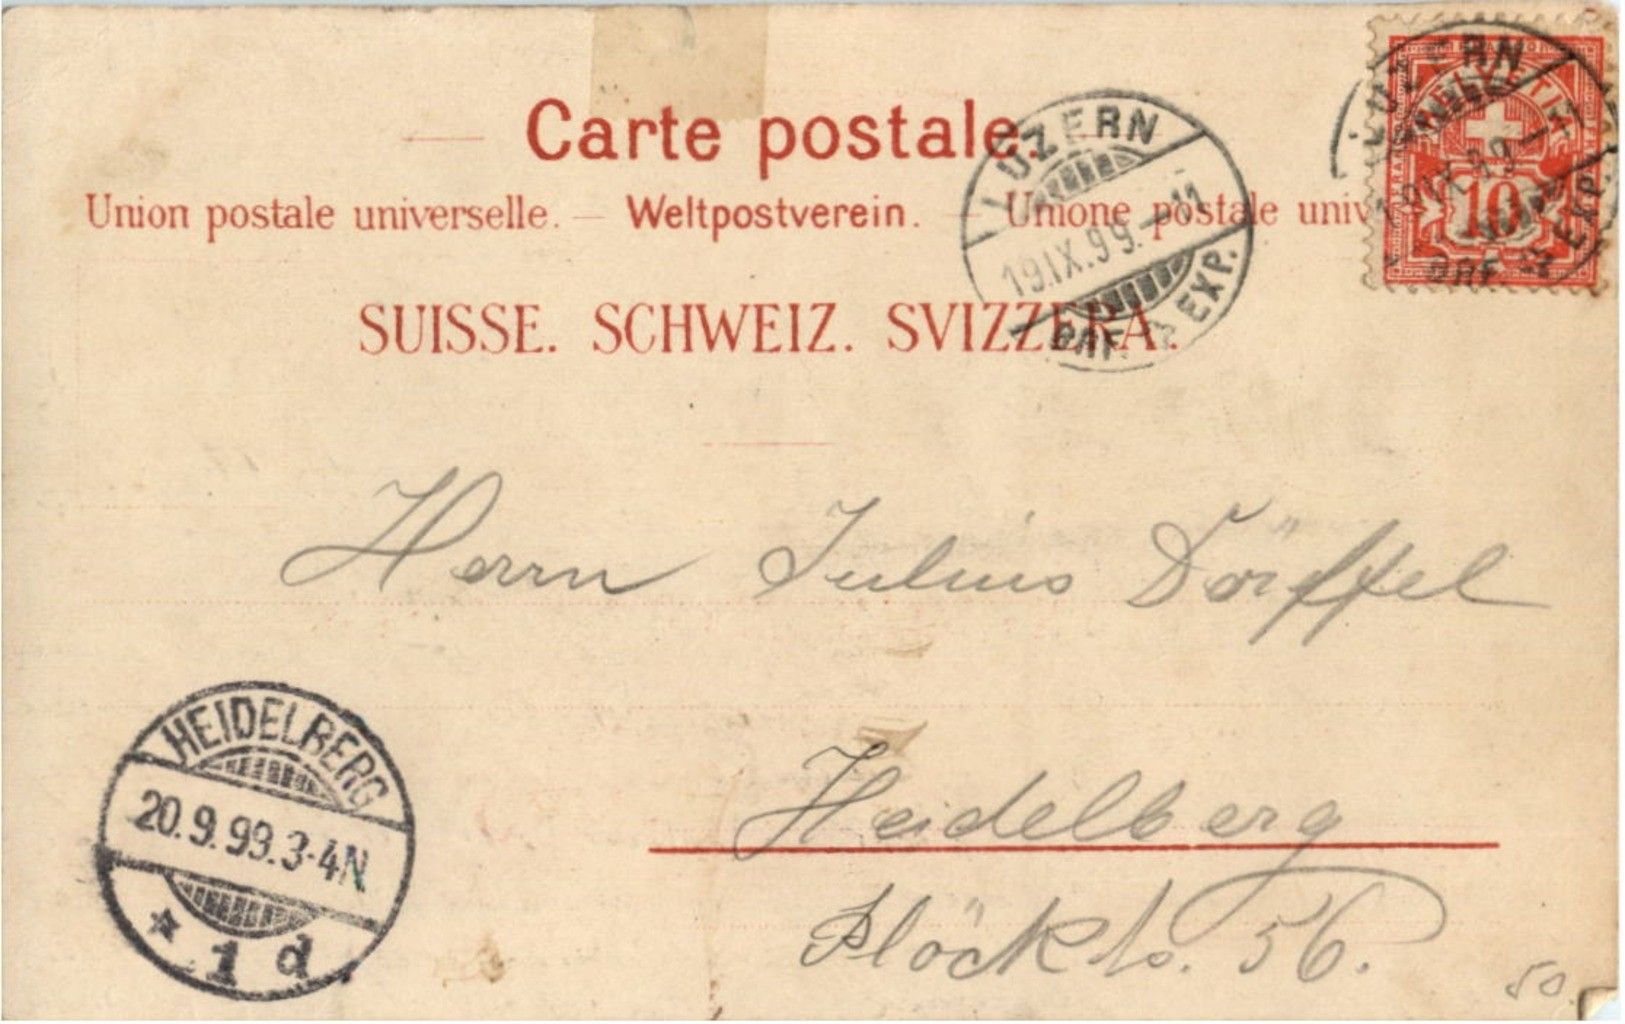 Carte postale.
Union postale universelle. — Weltpostverein. — Unione postale univ
SUISSE. SCHWEIZ. SVIZZERA.
LUZERN
19.IX.99.–11
BRF. EXP.
LUZERN
HELVETIA
10
BRF. EXP.
Herrn Julius Dörffel
Heidelberg
Plöckts. 56.
HEIDELBERG
20.9.99.3-4N
* 1 d
50.